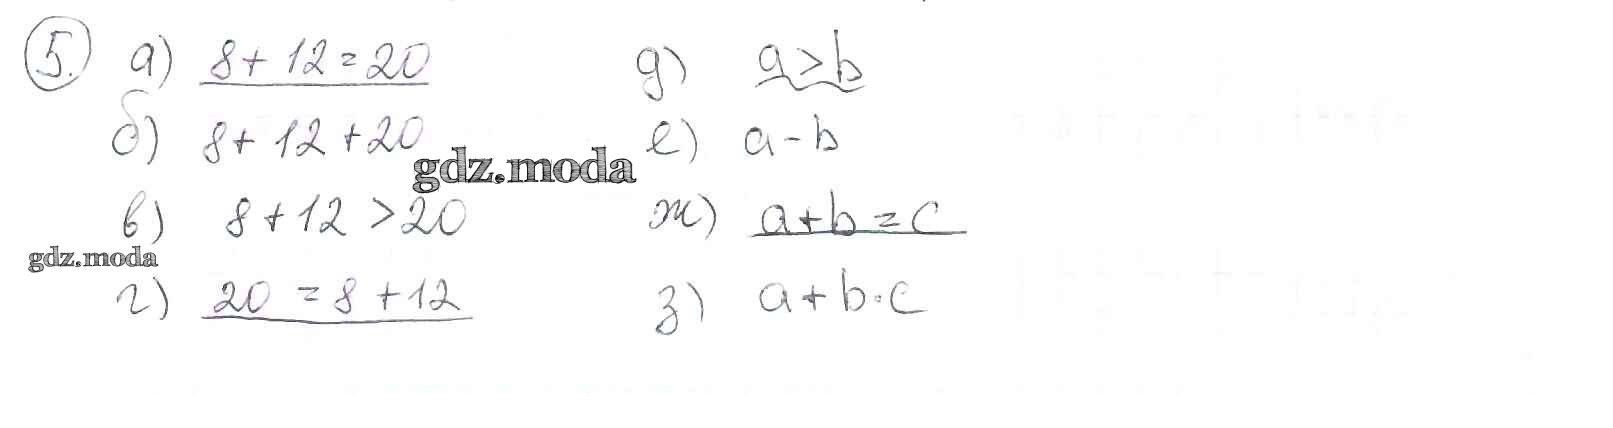 5. а) 8 + 12 = 20
б) 8 + 12 + 20
в) 8 + 12 > 20
г) 20 = 8 + 12
д) a > b
е) a - b
ж) a + b = c
з) a + b · c
gdz.moda
gdz.moda